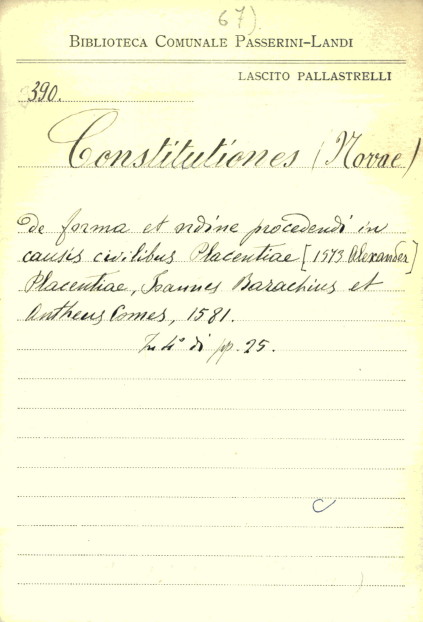 67).
BIBLIOTECA COMUNALE PASSERINI-LANDI
LASCITO PALLASTRELLI
390.
Constitutiones (Novae)
de forma et ordine procedendi in
causis civilibus Placentiae [1573 Alexander]
Placentiae, Joannes Bazachius et
Antheus Comes, 1581.
In 4° di pp. 25.
C